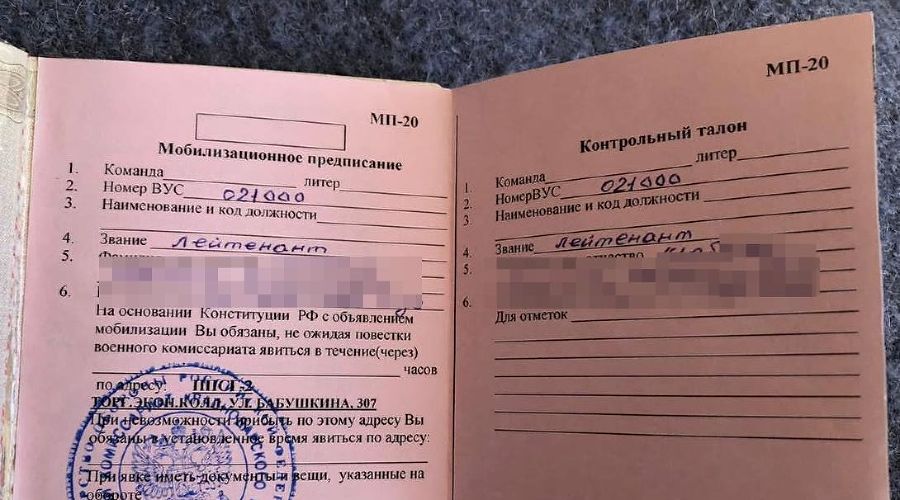 МП-20
Мобилизационное предписание
1. Команда литер
2. Номер ВУС 021000
3. Наименование и код должности
4. Звание лейтенант
5.
6.
На основании Конституции РФ с объявлением
мобилизации Вы обязаны, не ожидая повестки
военного комиссариата явиться в течение(через)
часов
по адресу: ППСГ-2
ТОРГ.ЭКОН.КОЛЛ, УЛ. БАБУШКИНА, 307
При невозможности прибыть по этому адресу Вы
обязаны в установленное время явиться по адресу:
При явке иметь документы и вещи, указанные на
обороте
МП-20
Контрольный талон
1. Команда литер
2. НомерВУС 021000
3. Наименование и код должности
4. Звание лейтенант
5.
6.
Для отметок